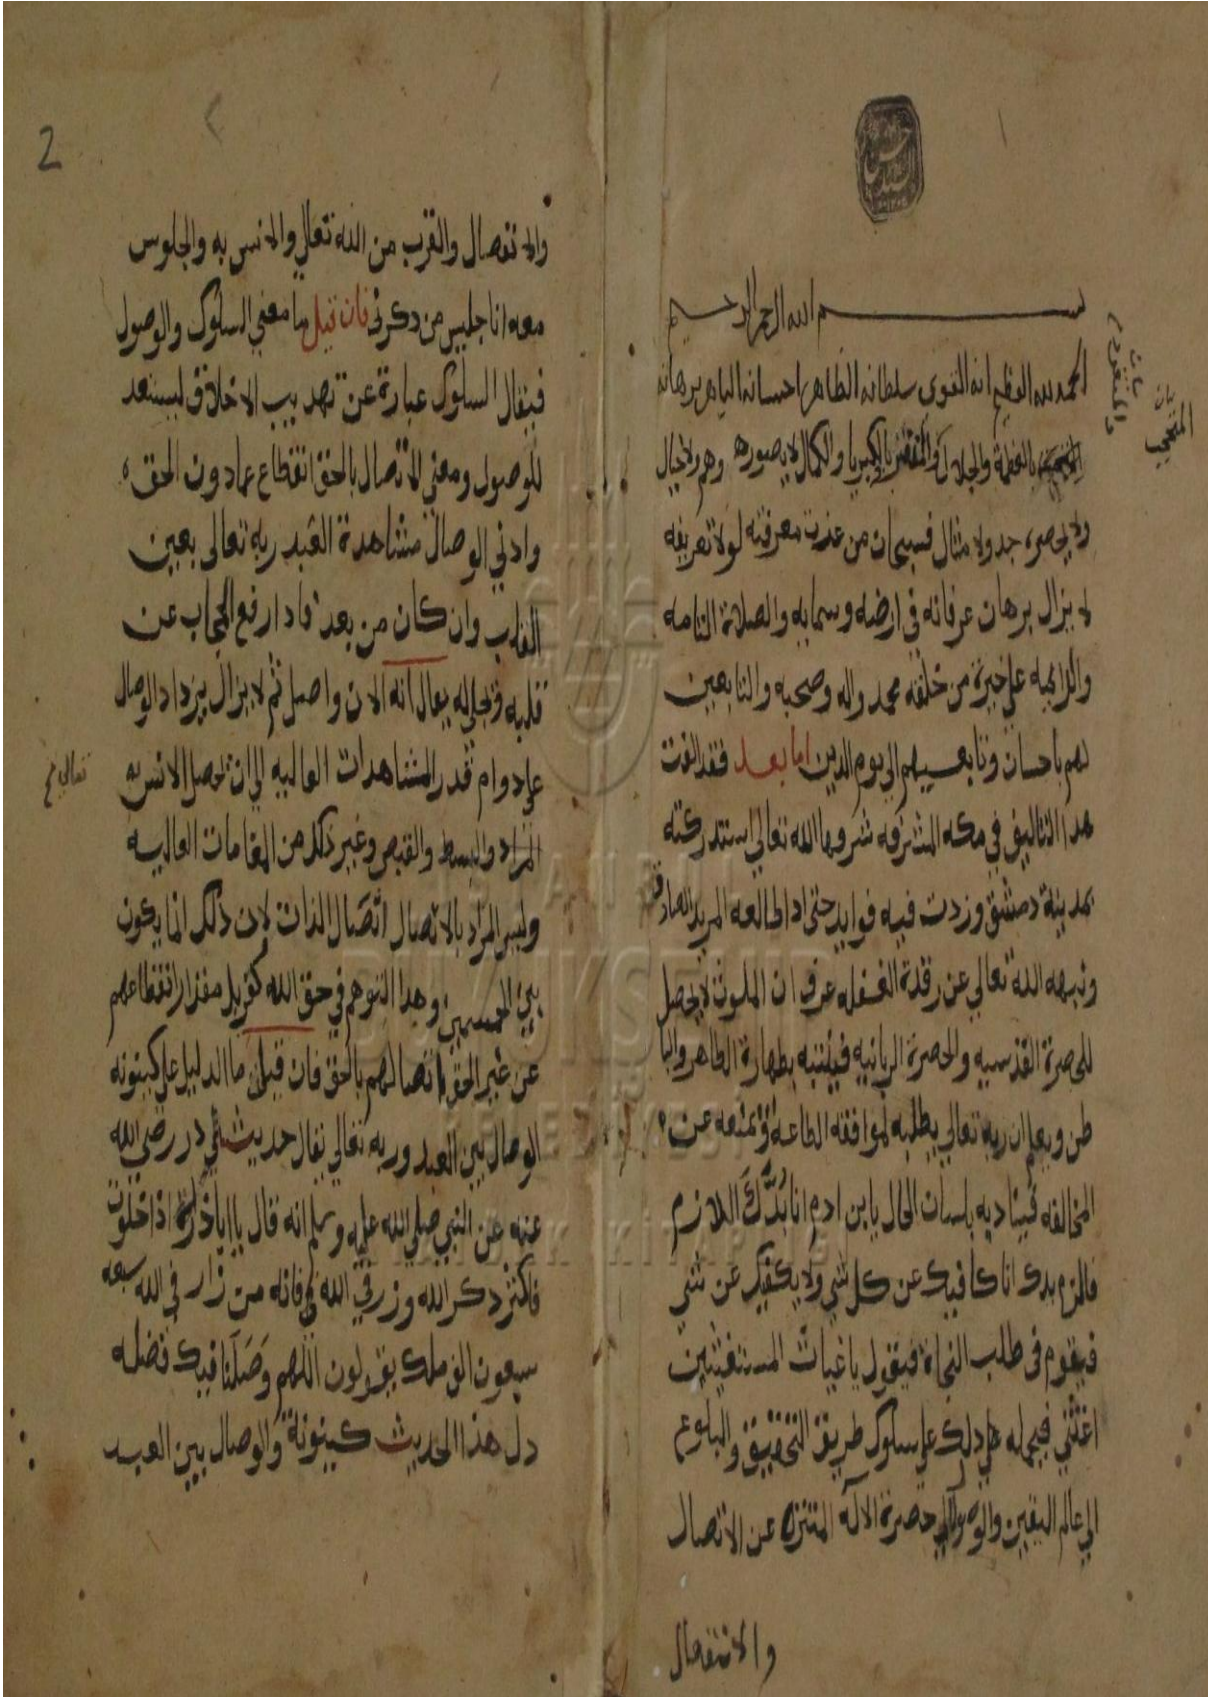 بسم الله الرحمن الرحيم
الحمد لله العظيم انه القوي سلطانه الظاهر احسانه الباهر برهانه
بالعظمة والجلال والمتفرد بالكبريا والكمال لا يصوره وهم ولا خيال
ولا يحصره حد ولا مثال فسبحان من عذرت معرفته لولا تعريفه
لا يزال برهان عرفانه في ارضه وسمايه والصلاة التامه
والداىمه على خيرة من خلقه محمد واله وصحبه والتابعين
لهم باحسان وتابعيهم الى يوم الدين اما بعد فقد الفت
هذا التاليف في مكه المشرفه شرفها الله تعالى استدركته
بمدينة دمشق وزدت فيه فوايد حتى اذا طالعه المريد الصادق
ونبهه الله تعالى عن رقدة الغفله عرف ان الملوث لا يحصل
للحضرة القدسيه والحضرة الربانيه فيلتبه بطهارة الظاهر والبا
طن ويعلم ان ربه تعالى يطلبه لموافقة الطاعة ويمنعه عن
المخالفه فيناديه بلسان الحال يا ابن ادم انا بُدُّكَ اللازم
فالزم بدك انا كافيك عن كل شي ولا يكفيك عن شي
فيقوم في طلب النجاة فيقول يا غياث المستغيثين
اغثني فيحمله على ذلك على سلوك طريق التحقيق والبلوغ
الى عالم اليقين والوصول الى حضرة الاله المتنزه عن الاتصال
والانفصال
المتفرد
2
والانفصال والقرب من الله تعالى والانس به والجلوس
معه انا جليس من ذكرني فان قيل ما معنى السلوك والوصول
فيقال السلوك عبارة عن تهذيب الاخلاق ليستعد
للوصول ومعنى الاتصال بالحق انقطاع عما دون الحق
وادنى الوصال مشاهدة العبد ربه تعالى بعين
القلب وان كان من بعد فاذا رفع الحجاب عن
قلبه وتجلى له يقال انه الان واصل ثم لا يزال يزداد الوصال
على دوام قدر المشاهدات العاليه الى ان تحصل الانس به
تعالى صح
المراد والبسط والقبض وغير ذلك من المقامات العاليه
وليس المراد بالاتصال اتصال الذات لان ذلك انما يكون
بين الجسمين وهذا التوهم في حق الله كفر بل مقدار انقطاعهم
عن غير الحق اتصالهم بالحق فان قيل ما الدليل على كينونة
الوصال بين العبد وربه تعالى يقال حديث ابي ذر رضي الله
عنه عن النبي صلى الله عليه وسلم انه قال يا اباذر اذا خلوت
فاكثر ذكر الله وزر في الله فانه من زار في الله شيعه
سبعون الف ملك يقولون اللهم وصلنا فيك فضله
دل هذا الحديث كينونة والوصال بين العبد